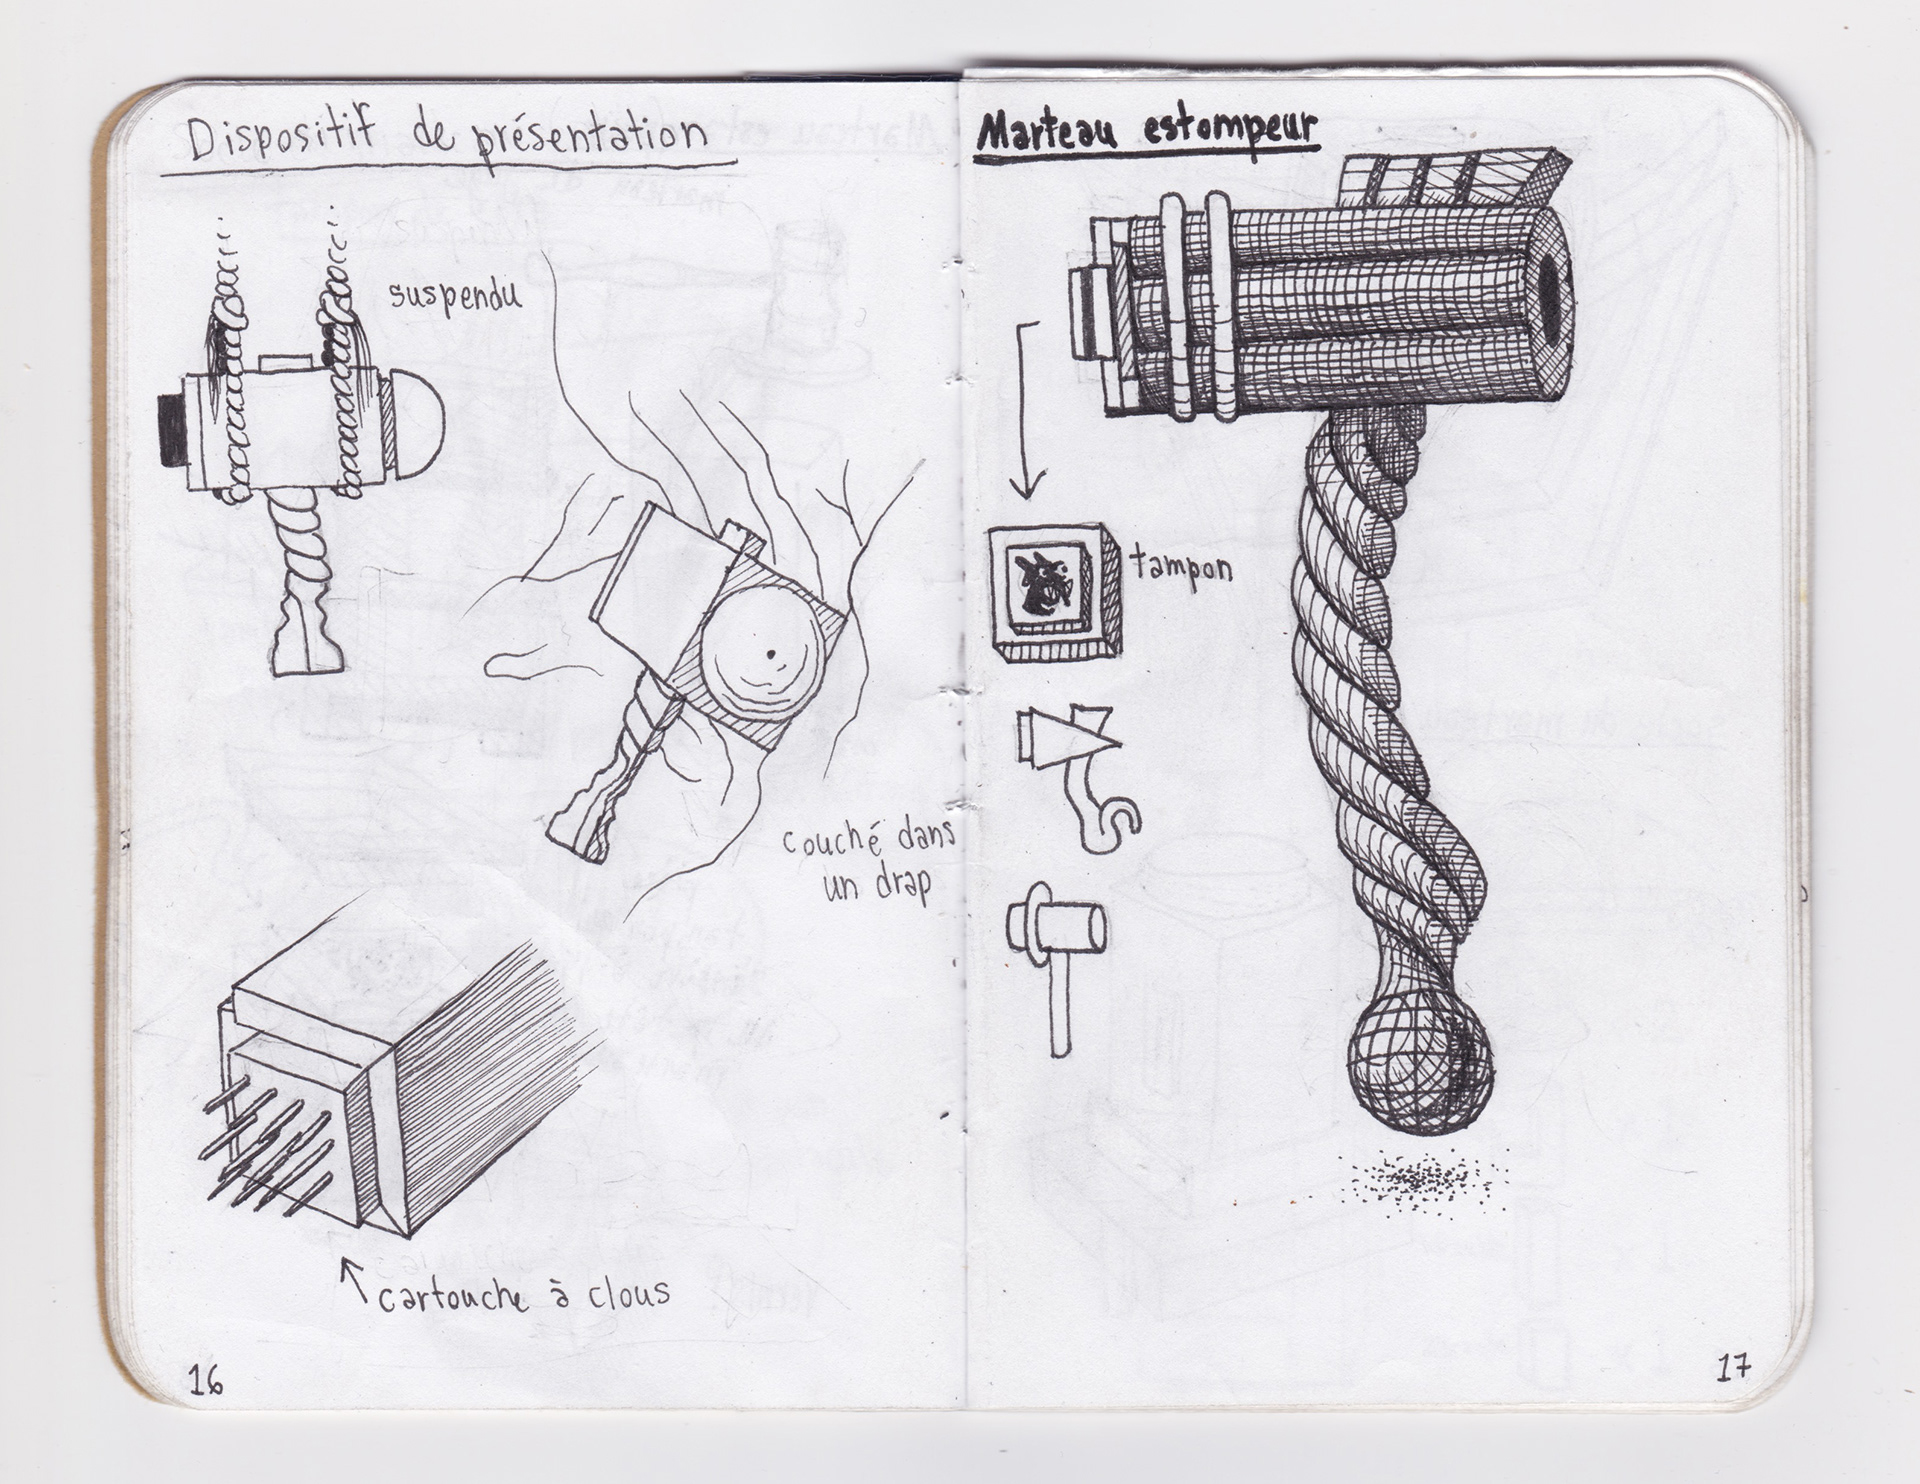 Dispositif de présentation
suspendu
couché dans
un drap
cartouche à clous
16
Marteau estompeur
tampon
17